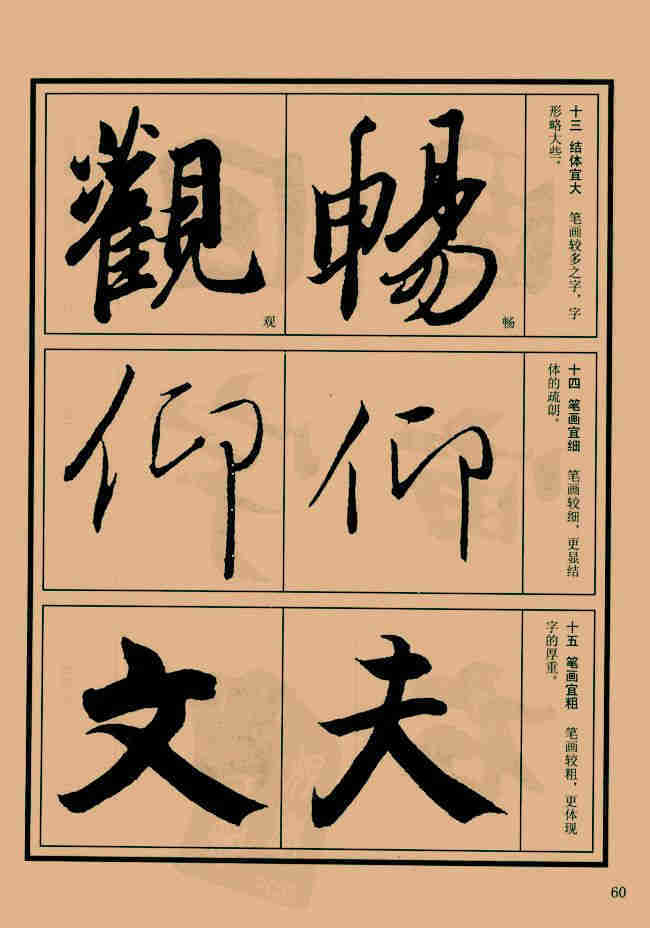 十三 结体宜大 笔画较多之字,字
形略大些。
暢
畅
觀
观
十四 笔画宜细 笔画较细,更显结
体的疏朗。
仰
仰
十五 笔画宜粗 笔画较粗,更体现
字的厚重。
夫
文
60